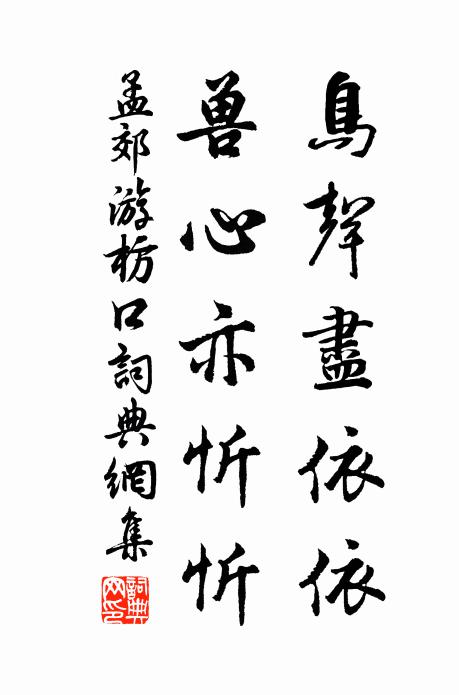 鳥聲盡依依
兽心亦忻忻
孟郊游枋口詞典網集
詞典网印